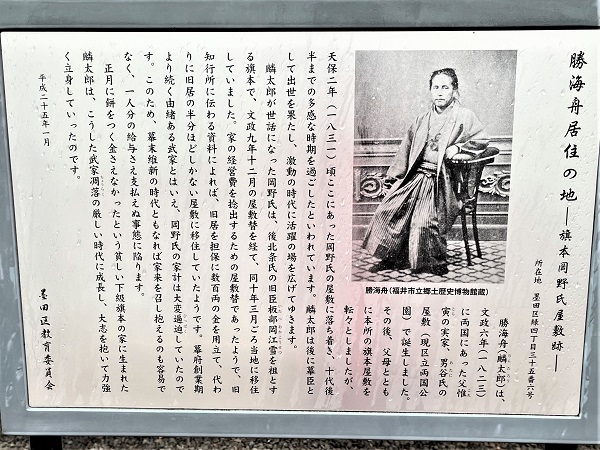 勝海舟居住の地―旗本岡野氏屋敷跡―
所在地 墨田区緑四丁目三十五番六号
勝海舟(麟太郎)は、
文政六年(一八二三)
に両国にあった父惟
寅の実家 男谷氏の
屋敷(現区立両国公
園)で誕生しました。
その後、父母ととも
に本所の旗本屋敷を
転々としましたが、
勝海舟(福井市立郷土歴史博物館蔵)
天保二年(一八三一)頃ここにあった岡野氏の屋敷に落ち着き、十代後
半までの多感な時期を過ごしたといわれています。麟太郎は後に幕臣と
して出世を果たし、激動の時代に活躍の場を広げてゆきます。
麟太郎が世話になった岡野氏は、後北条氏の旧臣板部岡江雪を祖とす
る旗本で、文政九年十二月の屋敷替を経て、同十年三月ごろ当地に移住
していました。家の経営費を捻出するための屋敷替であったようで、旧
知行所に伝わる資料によれば、旧居を担保に数百両の金を用立て、代わ
りに旧居の半分ほどしかない屋敷に移住していたようです。幕府創業期
より続く由緒ある武家とはいえ、岡野氏の家計は大変逼迫していたので
す。このため、幕末維新の時代ともなれば家来を召し抱えるのも容易で
なく、一人分の給与さえ支払えぬ事態に陥ります。
正月に餅をつく金さえなかったという貧しい下級旗本の家に生まれた
麟太郎は、こうした武家凋落の厳しい時代に成長し、大志を抱いて力強
く立身していったのです。
平成二十五年一月
墨田区教育委員会